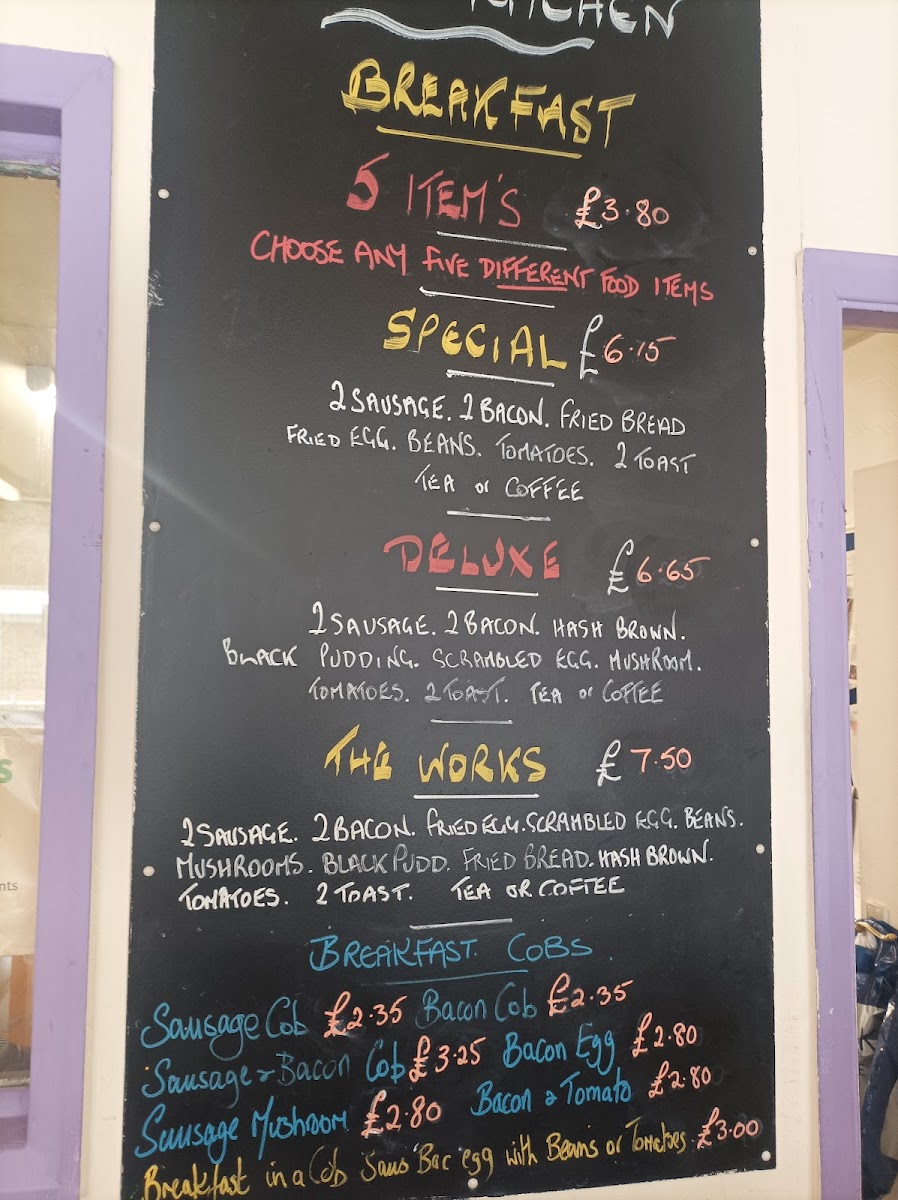 KITCHEN
BREAKFAST
5 ITEM'S £3.80
CHOOSE ANY FIVE DIFFERENT FOOD ITEMS
SPECIAL £6.15
2 SAUSAGE. 2 BACON. FRIED BREAD
FRIED EGG. BEANS. TOMATOES. 2 TOAST
TEA or COFFEE
DELUXE £6.65
2 SAUSAGE. 2 BACON. HASH BROWN.
BLACK PUDDING. SCRAMBLED EGG. MUSHROOM.
TOMATOES. 2 TOAST. TEA or COFFEE
THE WORKS £7.50
2 SAUSAGE. 2 BACON. FRIED EGG. SCRAMBLED EGG. BEANS.
MUSHROOMS. BLACK PUDD. FRIED BREAD. HASH BROWN.
TOMATOES. 2 TOAST. TEA OR COFFEE
BREAKFAST COBS
Sausage Cob £2.35 Bacon Cob £2.35
Sausage & Bacon Cob £3.25 Bacon Egg £2.80
Sausage Mushroom £2.80 Bacon & Tomato £2.80
Breakfast in a Cob Saus Bac egg with Beans or Tomatoes £3.00